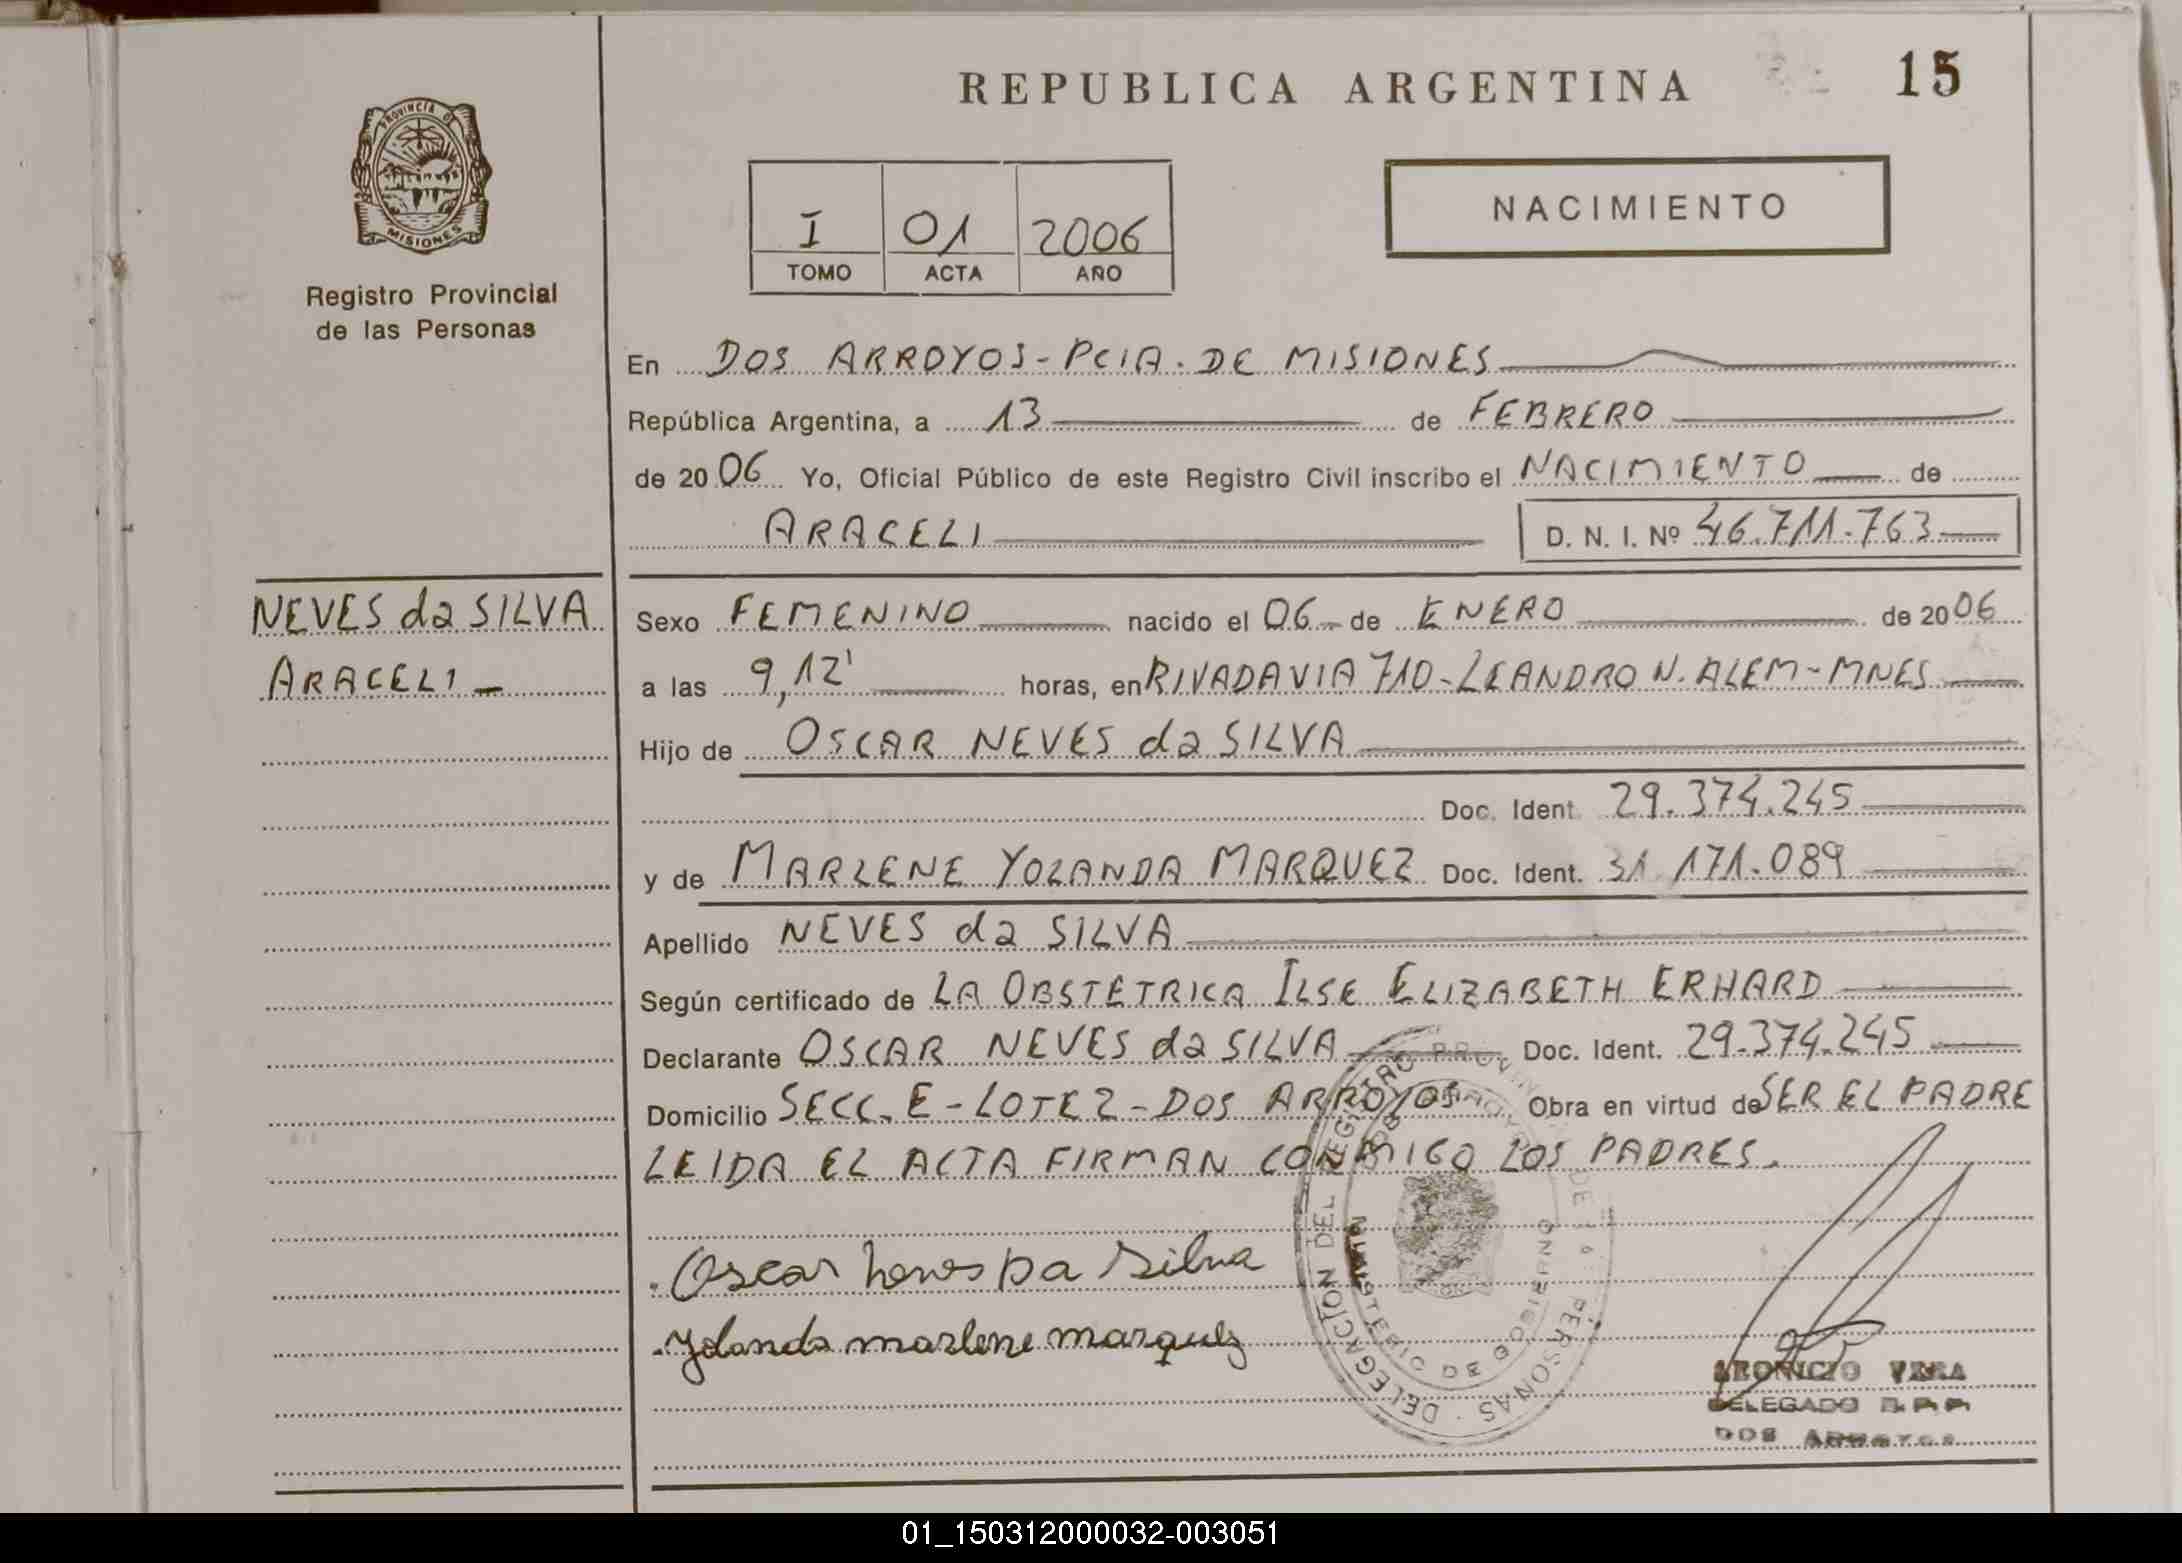 REPUBLICA ARGENTINA
15
PROVINCIA DE
MISIONES
Registro Provincial
de las Personas
I 01 2006
TOMO ACTA AÑO
NACIMIENTO
En DOS ARROYOS - PCIA. DE MISIONES
República Argentina, a 13 de FEBRERO
de 2006 Yo, Oficial Público de este Registro Civil inscribo el NACIMIENTO de
ARACELI D. N. I. Nº 46.711.763
NEVES da SILVA
ARACELI
Sexo FEMENINO nacido el 06 de ENERO de 2006
a las 9,12' horas, en RIVADAVIA 710 - LEANDRO N. ALEM - MNES
Hijo de OSCAR NEVES da SILVA
Doc. Ident. 29.374.245
y de MARLENE YOLANDA MARQUEZ Doc. Ident. 31.171.089
Apellido NEVES da SILVA
Según certificado de LA OBSTETRICA ILSE ELIZABETH ERHARD
Declarante OSCAR NEVES da SILVA Doc. Ident. 29.374.245
Domicilio SECC. E - LOTE 2 - DOS ARROYOS Obra en virtud de SER EL PADRE
LEIDA EL ACTA FIRMAN CONMIGO LOS PADRES.
Oscar neves Da Silva
Yolanda marlene marquez
DELEGACION DEL REGISTRO PROVINCIAL DE LAS PERSONAS
MINISTERIO DE GOBIERNO
VERA
DELEGADO R.P.P.
DOS ARROYOS
01_150312000032-003051